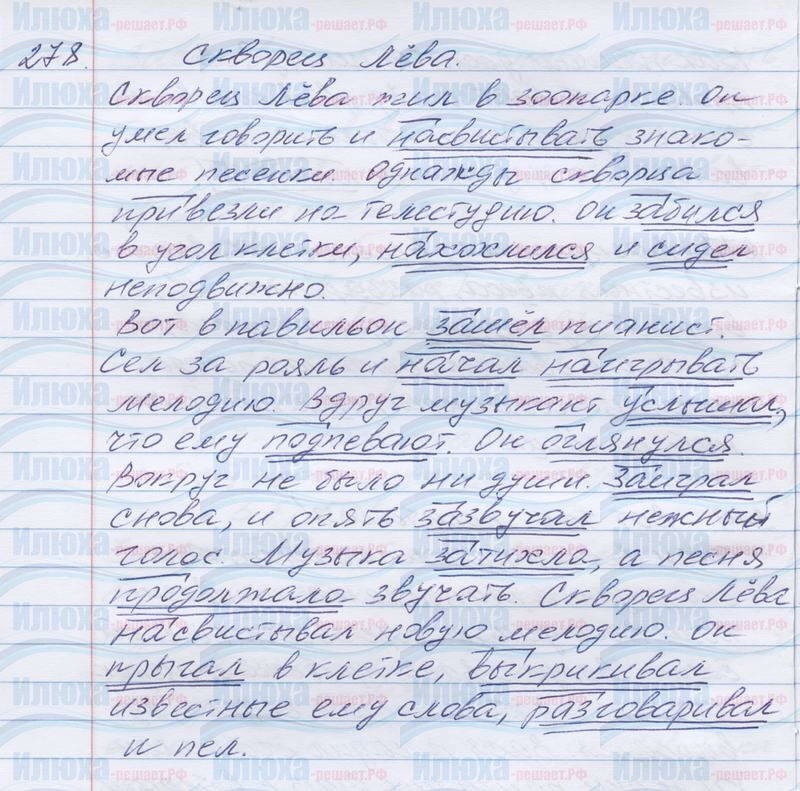 278. Скворец Лёва.
Скворец Лёва жил в зоопарке. Он
умел говорить и насвистывать знако-
мые песенки. Однажды скворца
привезли на телестудию. Он забился
в угол клетки, нахохлился и сидел
неподвижно.
Вот в павильон зашёл пианист.
Сел за рояль и начал наигрывать
мелодию. Вдруг музыкант услышал,
что ему подпевают. Он оглянулся.
Вокруг не было ни души. Заиграл
снова, и опять зазвучал нежный
голос. Музыка затихла, а песня
продолжала звучать. Скворец Лёва
насвистывал новую мелодию. Он
прыгал в клетке, выкрикивал
известные ему слова, разговаривал
и пел.
Илюха-решает.РФ